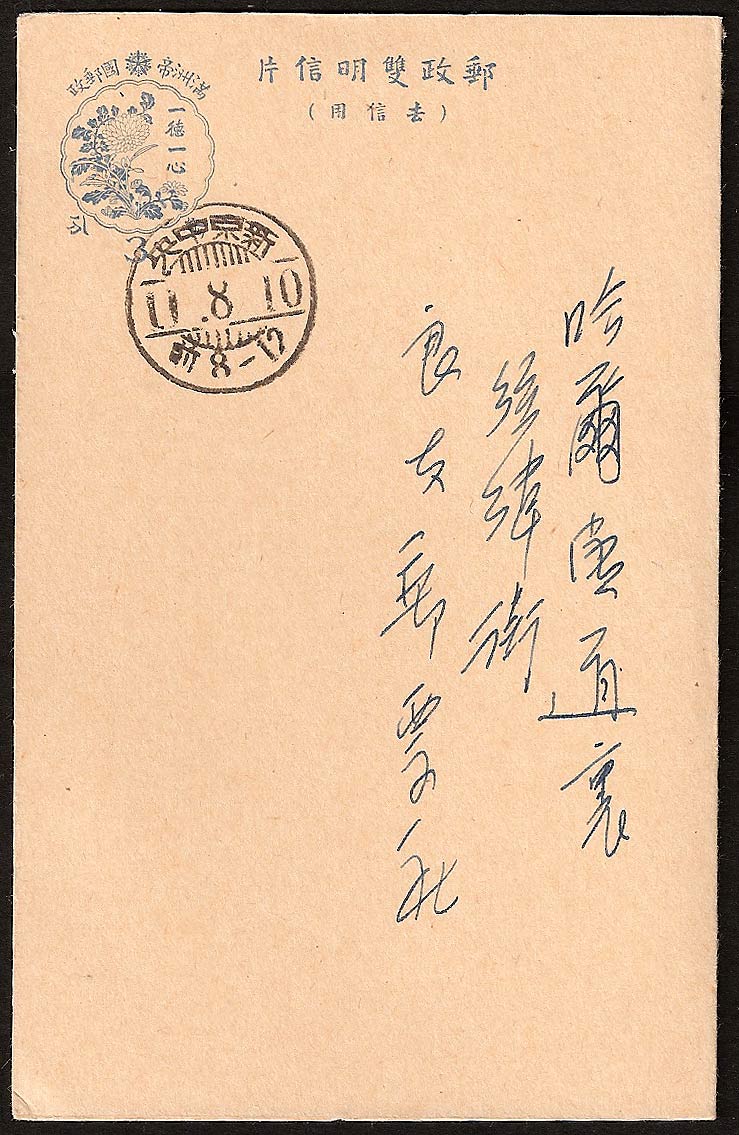 郵政雙明信片
(去信用)
滿洲帝國郵政
一德一心
分
新京中央
11.8.10
前8-12
哈爾濱道裏
經緯街
良友郵票社